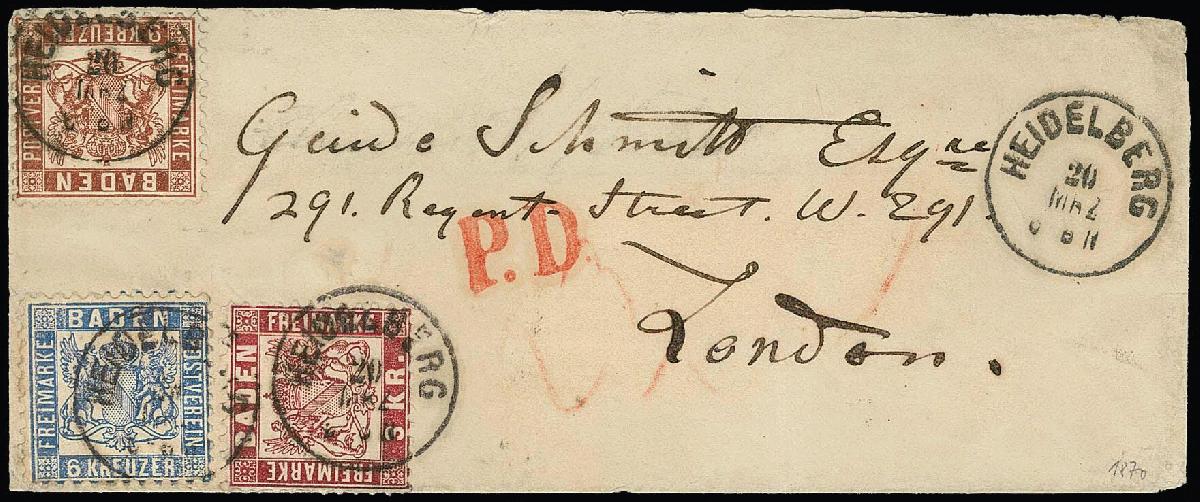 9 KREUZER
POSTVEREIN
FREIMARKE
BADEN
HEIDELBERG
20
MRZ
Guido Schmitt Esqre
291. Regent Street. W. 291.
London.
P.D.
HEIDELBERG
20
MRZ
6 8 N
BADEN
FREIMARKE
POSTVEREIN
6 KREUZER
HEIDELBERG
FREIMARKE
BADEN
3 KR.
FREIMARKE
HEIDELBERG
20
MRZ
1870